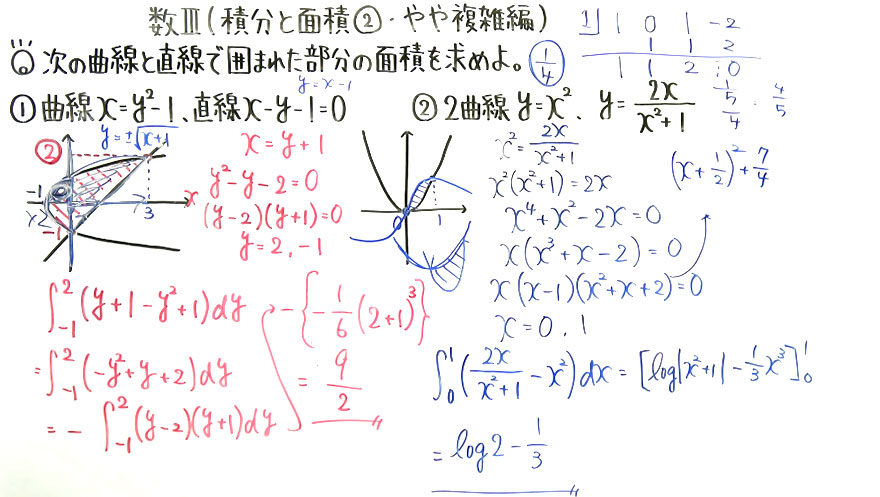 数Ⅲ(積分と面積②・やや複雑編)
次の曲線と直線で囲まれた部分の面積を求めよ。
1/4
1 | 1 0 1 -2
1 1 2
1 1 2 0
y=x-1
① 曲線x=y²-1、直線x-y-1=0
y=±√(x+1)
②
-1
2
-1
3
x
x=y+1
y²-y-2=0
(y-2)(y+1)=0
y=2, -1
∫₋₁²(y+1-y²+1)dy
=∫₋₁²(-y²+y+2)dy
=-∫₋₁²(y-2)(y+1)dy
-{-1/6(2+1)³}
=9/2
② 2曲線 y=x²、y=2x/(x²+1)
0
1
x²=2x/(x²+1)
x²(x²+1)=2x
x⁴+x²-2x=0
x(x³+x-2)=0
x(x-1)(x²+x+2)=0
x=0, 1
4/5
(x+1/2)²+7/4
∫₀¹(2x/(x²+1)-x²)dx=[log|x²+1|-1/3x³]₀¹
=log2-1/3